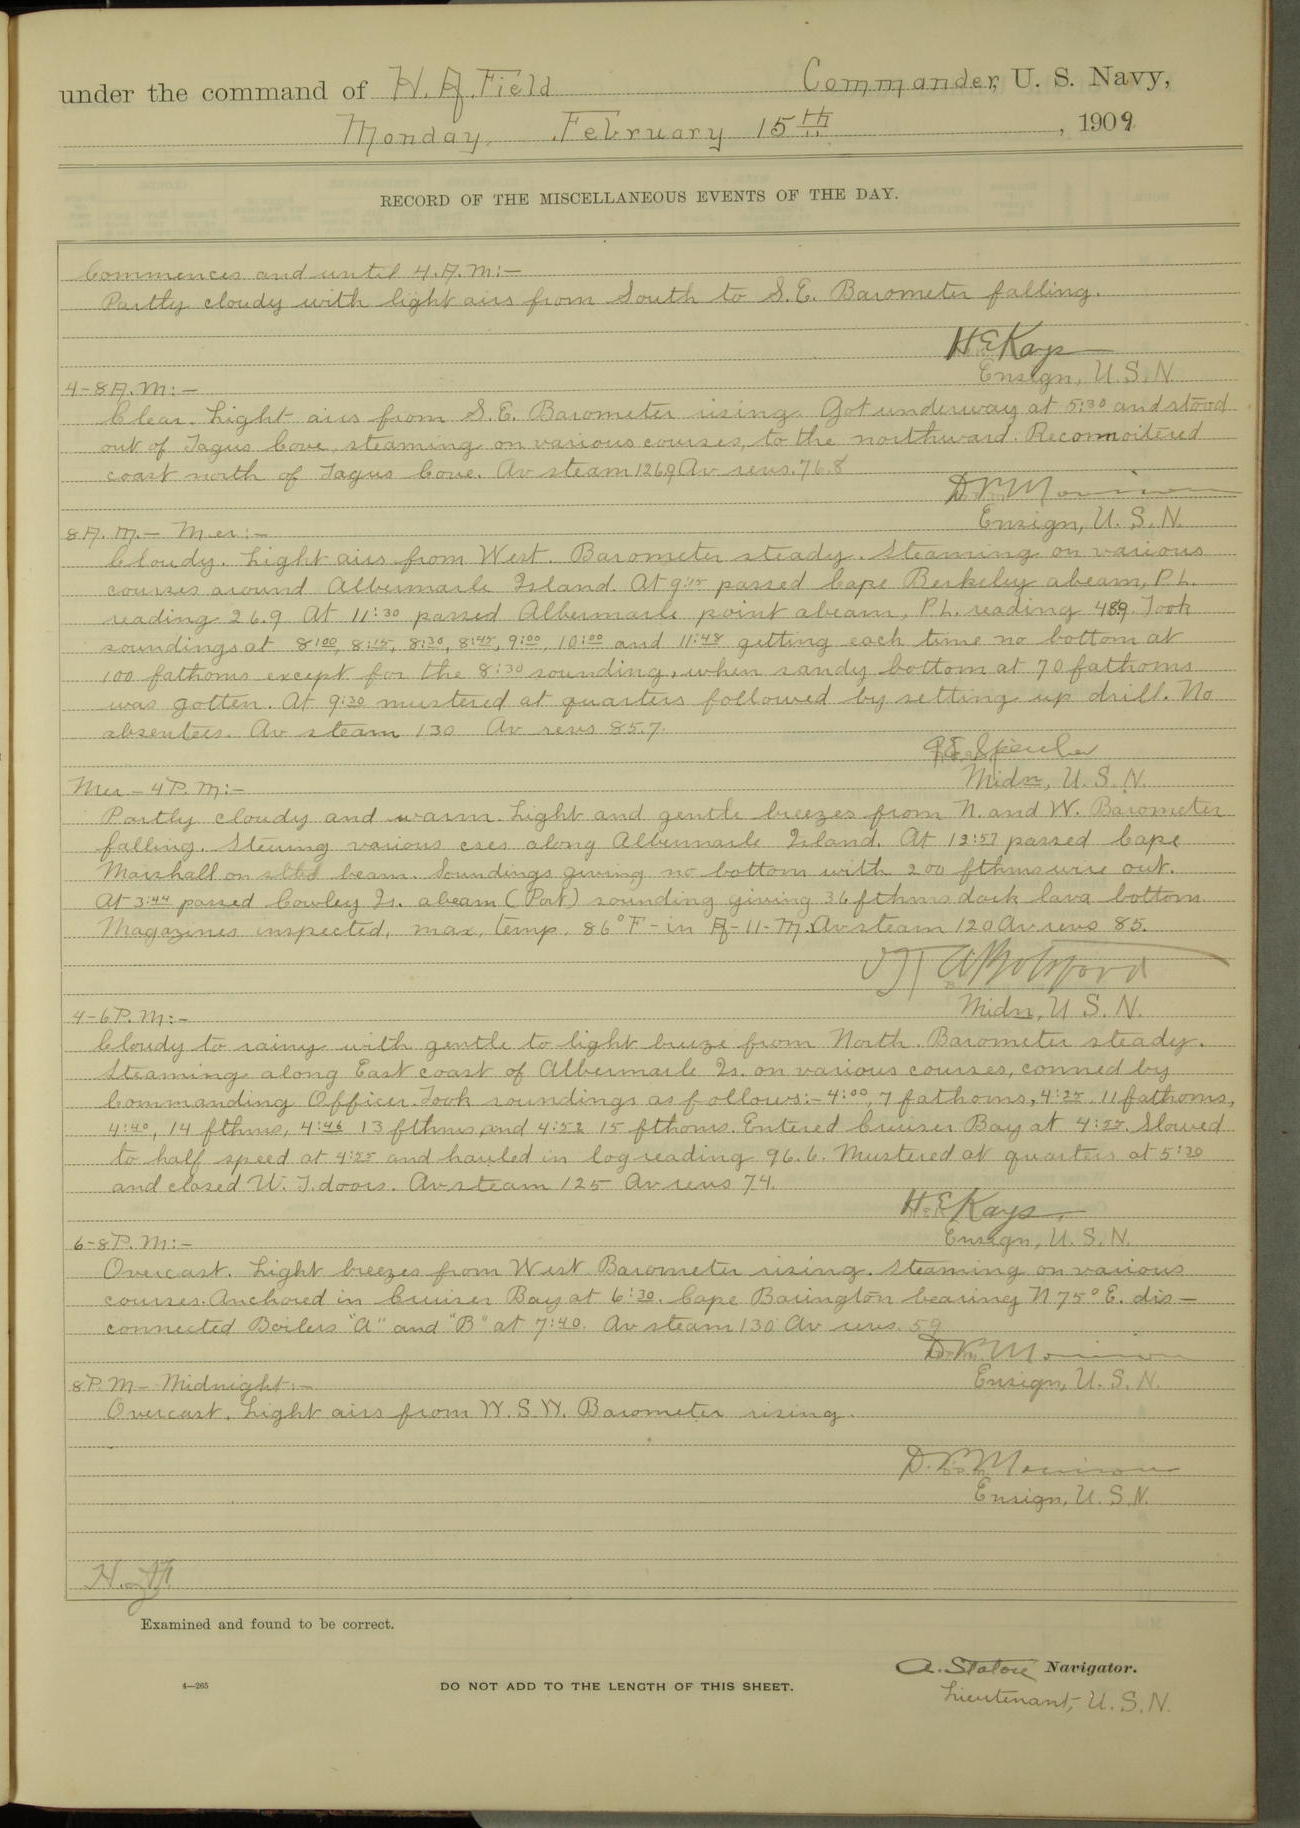 under the command of H. A. Field Commander, U. S. Navy,
Monday, February 15th, 1909
RECORD OF THE MISCELLANEOUS EVENTS OF THE DAY.
Commences and until 4. A. M:-
Partly cloudy with light airs from South to S.E. Barometer falling.
H E Kays
Ensign, U.S.N.
4-8 A.M:-
Clear. Light airs from S.E. Barometer rising. Got underway at 5:30 and stood
out of Tagus Cove, steaming on various courses, to the northward. Reconnoitered
coast north of Tagus Cove. Av steam 126.9 Av revs. 76.8
Ensign, U.S.N.
8 A. M.- Mer:-
Cloudy. Light airs from West. Barometer steady. Steaming on various
courses around Albermarle Island. At 9:15 passed Cape Berkeley abeam, P.L.
reading 26.9 At 11:30 passed Albermarle point abeam, P.L. reading 48.9 Took
soundings at 8:00, 8:15, 8:30, 8:45, 9:00, 10:00 and 11:48 getting each time no bottom at
100 fathoms except for the 8:30 sounding, when sandy bottom at 70 fathoms
was gotten. At 9:30 mustered at quarters followed by setting up drill. No
absentees. Av steam 130 Av revs 85.7.
Midn, U.S.N.
Mer - 4 P. M:-
Partly cloudy and warm. Light and gentle breezes from N. and W. Barometer
falling. Steering various cses along Albermarle Island. At 12:57 passed Cape
Marshall on stbd beam. Soundings giving no bottom with 200 fthms wire out.
At 3:44 passed Cowley Is. abeam (Port) sounding giving 36 fthms dark lava bottom
Magazines inspected, max, temp. 86°F - in A-11-M. Av steam 120 Av revs 85.
Botsford
Midn, U.S.N.
4-6 P. M:-
Cloudy to rainy with gentle to light breeze from North. Barometer steady.
Steaming along East coast of Albermarle Is. on various courses, conned by
Commanding Officer. Took soundings as follows:- 4:00, 7 fathoms, 4:25 11 fathoms,
4:40, 14 fthms, 4:46 13 fthms, and 4:52 15 fthoms. Entered Cruiser Bay at 4:25. Slowed
to half speed at 4:25 and hauled in log reading 96.6. Mustered at quarters at 5:30
and closed W. T. doors. Av steam 125 Av revs 74.
H E Kays
Ensign, U.S.N.
6-8 P. M:-
Overcast. Light breezes from West Barometer rising. Steaming on various
courses. Anchored in Cruiser Bay at 6:30. Cape Barington bearing N 75° E. dis-
connected Boilers "A" and "B" at 7:40. Av steam 130 Av revs. 59
Ensign, U.S.N.
8 P. M - Midnight:-
Overcast. Light airs from W.S.W. Barometer rising.
Ensign, U.S.N.
Examined and found to be correct.
A. Staton Navigator.
4—265 DO NOT ADD TO THE LENGTH OF THIS SHEET.
Lieutenant, U.S.N.